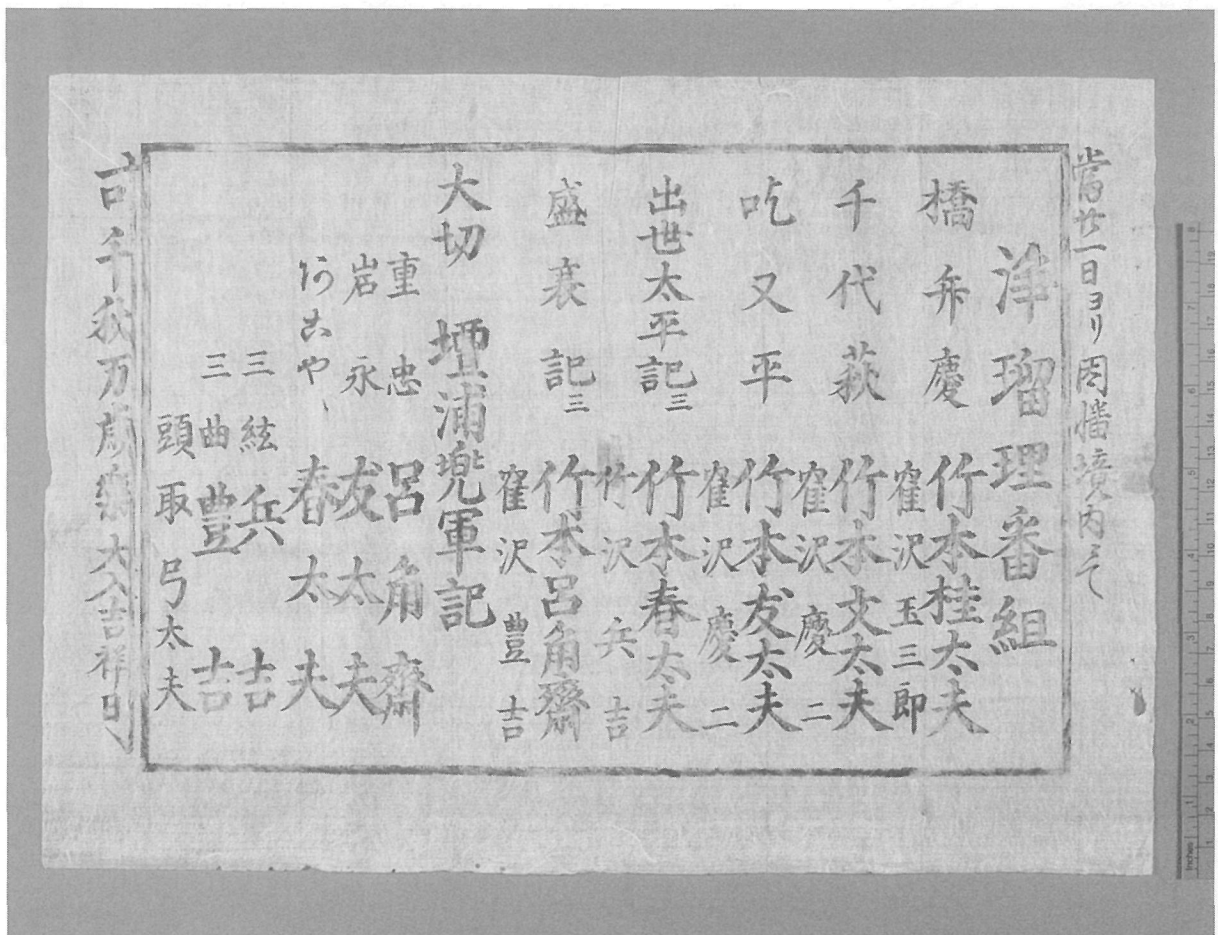 當廿一日ヨリ因幡境内ニて
浄瑠理番組
橋弁慶 竹本桂太夫
窪沢玉三郎
千代萩 竹本文太夫
窪沢慶二
吃又平 竹本友太夫
窪沢慶二
出世太平記三 竹本春太夫
竹沢兵吉
盛衰記三 竹本呂角齋
窪沢豊吉
大切 壇浦兜軍記
重忠 呂角齋
岩永 友太夫
阿こや 春太夫
三絃 兵吉
三曲 豊吉
頭取 弓太夫
千秋万歳楽大入吉祥日